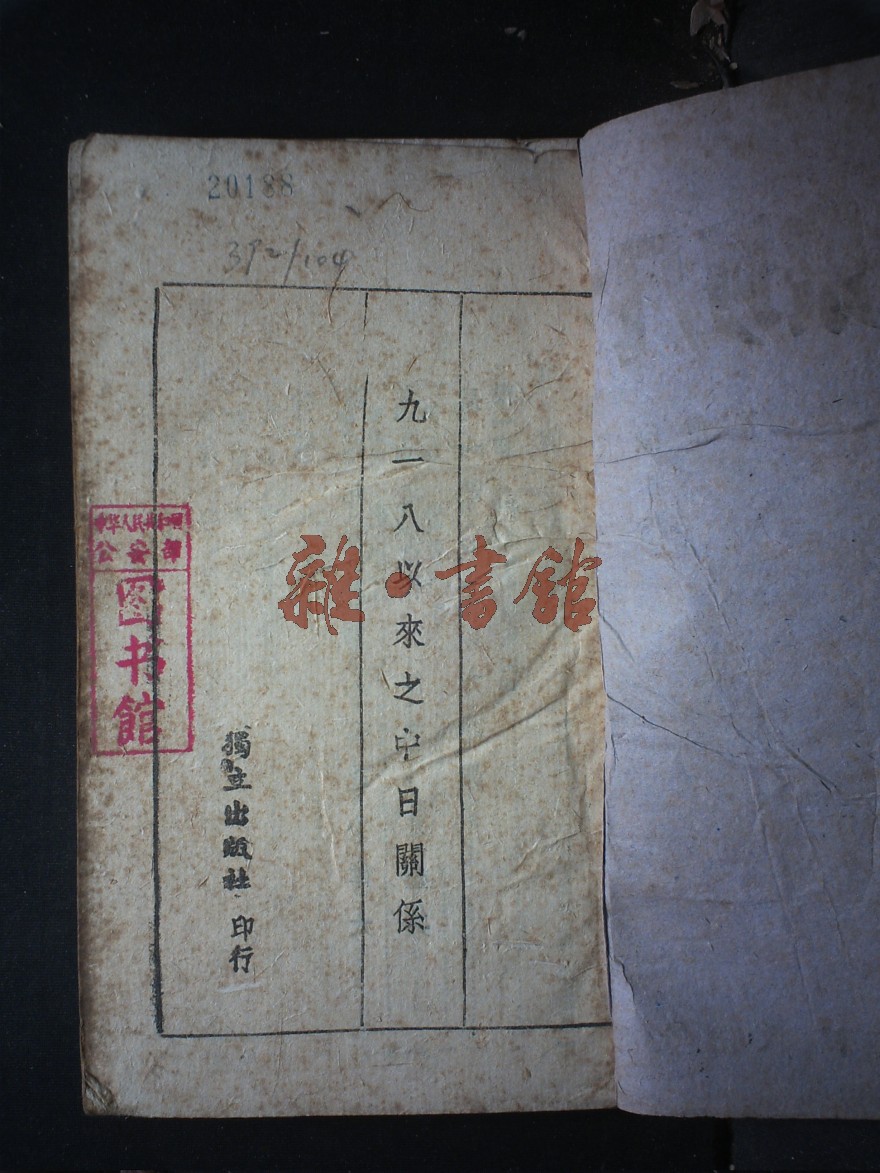 20188
392/104
九一八以來之中日關係
獨立出版社 印行
中华人民共和国
公安部
图书馆
雜·書館